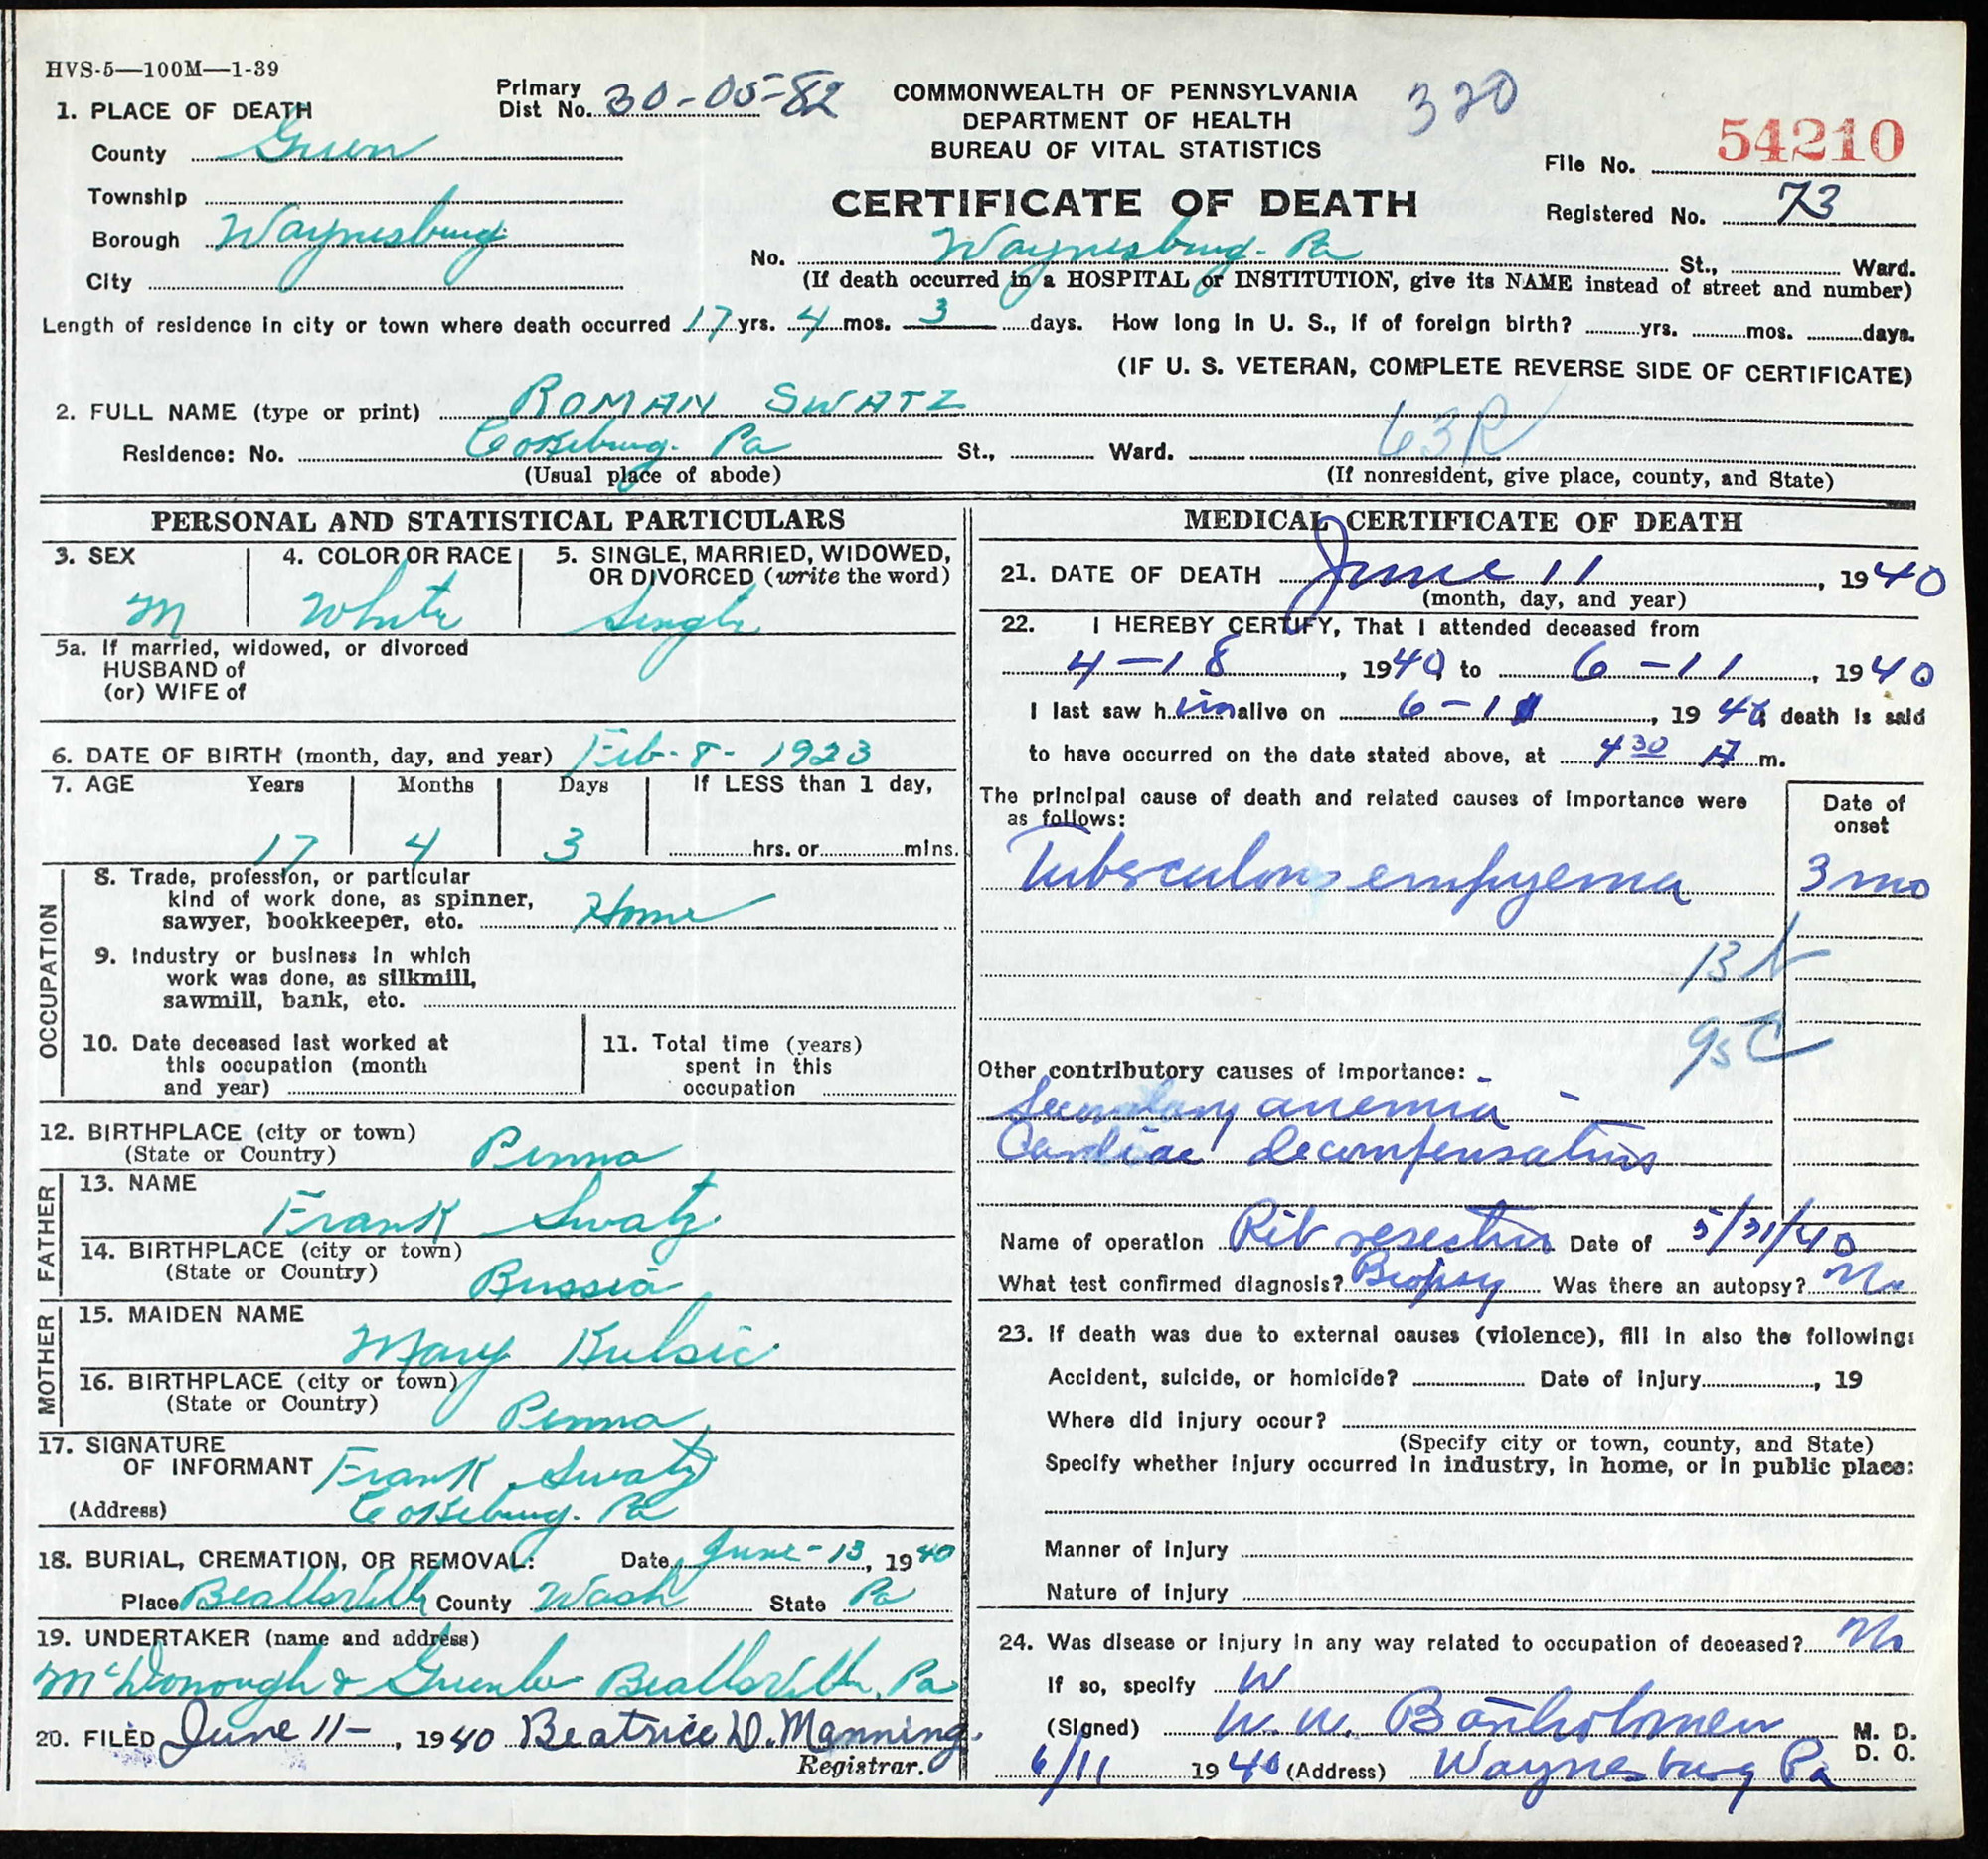 HVS-5—100M—1-39
1. PLACE OF DEATH
Primary
Dist No. 30-05-82
COMMONWEALTH OF PENNSYLVANIA
DEPARTMENT OF HEALTH
BUREAU OF VITAL STATISTICS
320
County Green
File No. 54210
Township
CERTIFICATE OF DEATH
Registered No. 73
Borough Waynesburg
No. Waynesburg. Pa St., Ward.
City
(If death occurred in a HOSPITAL or INSTITUTION, give its NAME instead of street and number)
Length of residence in city or town where death occurred 17 yrs. 4 mos. 3 days. How long in U. S., if of foreign birth? yrs. mos. days.
(IF U. S. VETERAN, COMPLETE REVERSE SIDE OF CERTIFICATE)
2. FULL NAME (type or print) ROMAN SWATZ
63R
Residence: No. Cokeburg. Pa St., Ward.
(Usual place of abode) (If nonresident, give place, county, and State)
PERSONAL AND STATISTICAL PARTICULARS
3. SEX 4. COLOR OR RACE 5. SINGLE, MARRIED, WIDOWED,
OR DIVORCED (write the word)
M White Single
5a. If married, widowed, or divorced
HUSBAND of
(or) WIFE of
6. DATE OF BIRTH (month, day, and year) Feb-8-1923
7. AGE Years Months Days If LESS than 1 day,
17 4 3 hrs. or mins.
OCCUPATION
8. Trade, profession, or particular
kind of work done, as spinner,
sawyer, bookkeeper, etc. Home
9. Industry or business in which
work was done, as silkmill,
sawmill, bank, etc.
10. Date deceased last worked at
this occupation (month
and year)
11. Total time (years)
spent in this
occupation
12. BIRTHPLACE (city or town)
(State or Country) Penna
FATHER
13. NAME
Frank Swatz
14. BIRTHPLACE (city or town)
(State or Country) Russia
MOTHER
15. MAIDEN NAME
Mary Kulsic
16. BIRTHPLACE (city or town)
(State or Country) Penna
17. SIGNATURE
OF INFORMANT Frank Swatz
(Address) Cokeburg. Pa
18. BURIAL, CREMATION, OR REMOVAL: Date June-13, 1940
Place Beallsville County Wash State Pa
19. UNDERTAKER (name and address)
McDonough & Greenlee Beallsville, Pa
20. FILED June 11-, 1940 Beatrice D. Manning
Registrar.
MEDICAL CERTIFICATE OF DEATH
21. DATE OF DEATH June 11, 1940
(month, day, and year)
22. I HEREBY CERTIFY, That I attended deceased from
4-18, 1940, to 6-11, 1940
I last saw him alive on 6-11, 1940, death is said
to have occurred on the date stated above, at 4 30 A m.
The principal cause of death and related causes of importance were
as follows:
Date of
onset
Tuberculous empyema 3 mo
13
95 C
Other contributory causes of importance:
Secondary anemia
Cardiac decompensation
Name of operation Rib resection Date of 5/31/40
What test confirmed diagnosis? Biopsy Was there an autopsy? No
23. If death was due to external causes (violence), fill in also the following:
Accident, suicide, or homicide? Date of injury, 19
Where did injury occur?
(Specify city or town, county, and State)
Specify whether injury occurred in industry, in home, or in public place:
Manner of injury
Nature of injury
24. Was disease or injury in any way related to occupation of deceased? No
If so, specify W
(Signed) W. W. Bartholomew M. D.
D. O.
6/11 1940 (Address) Waynesburg Pa